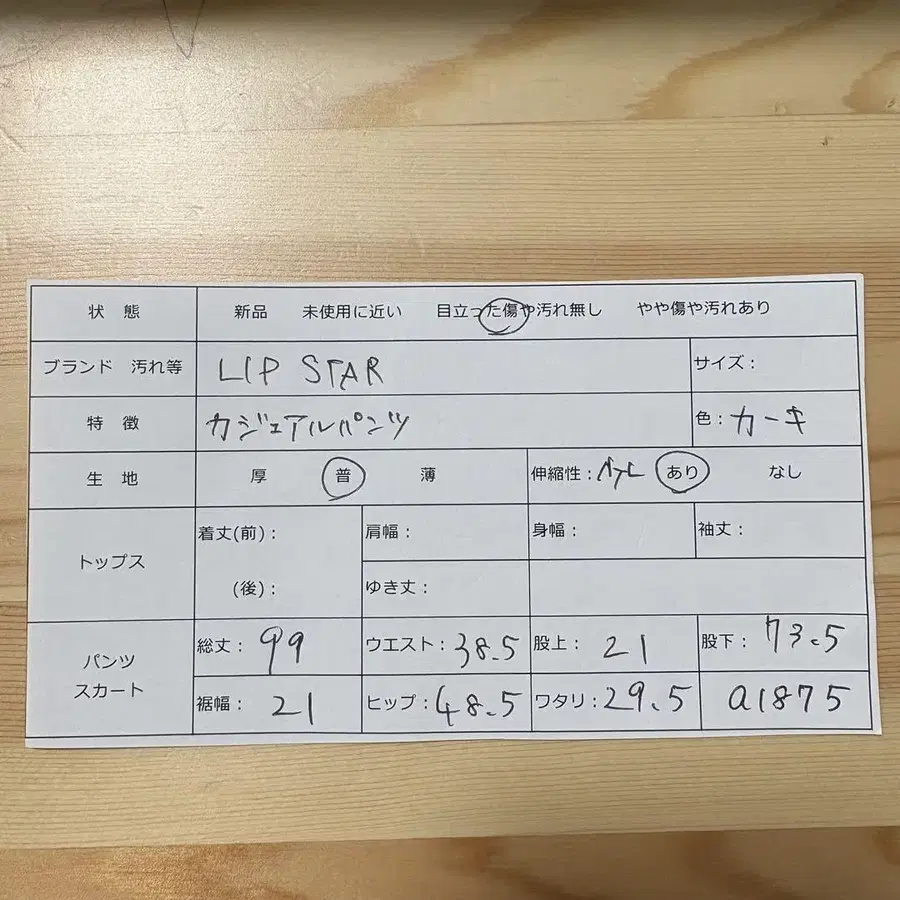 状 態 新品 未使用に近い 目立った傷や汚れ無し やや傷や汚れあり
ブランド 汚れ等 LIP STAR サイズ：
特 徴 カジュアルパンツ 色：カーキ
生 地 厚 普 薄 伸縮性： あり なし
トップス 着丈(前)： 肩幅： 身幅： 袖丈：
(後)： ゆき丈：
パンツ スカート 総丈：99 ウエスト：38.5 股上：21 股下：73.5
裾幅：21 ヒップ：48.5 ワタリ：29.5 a1875